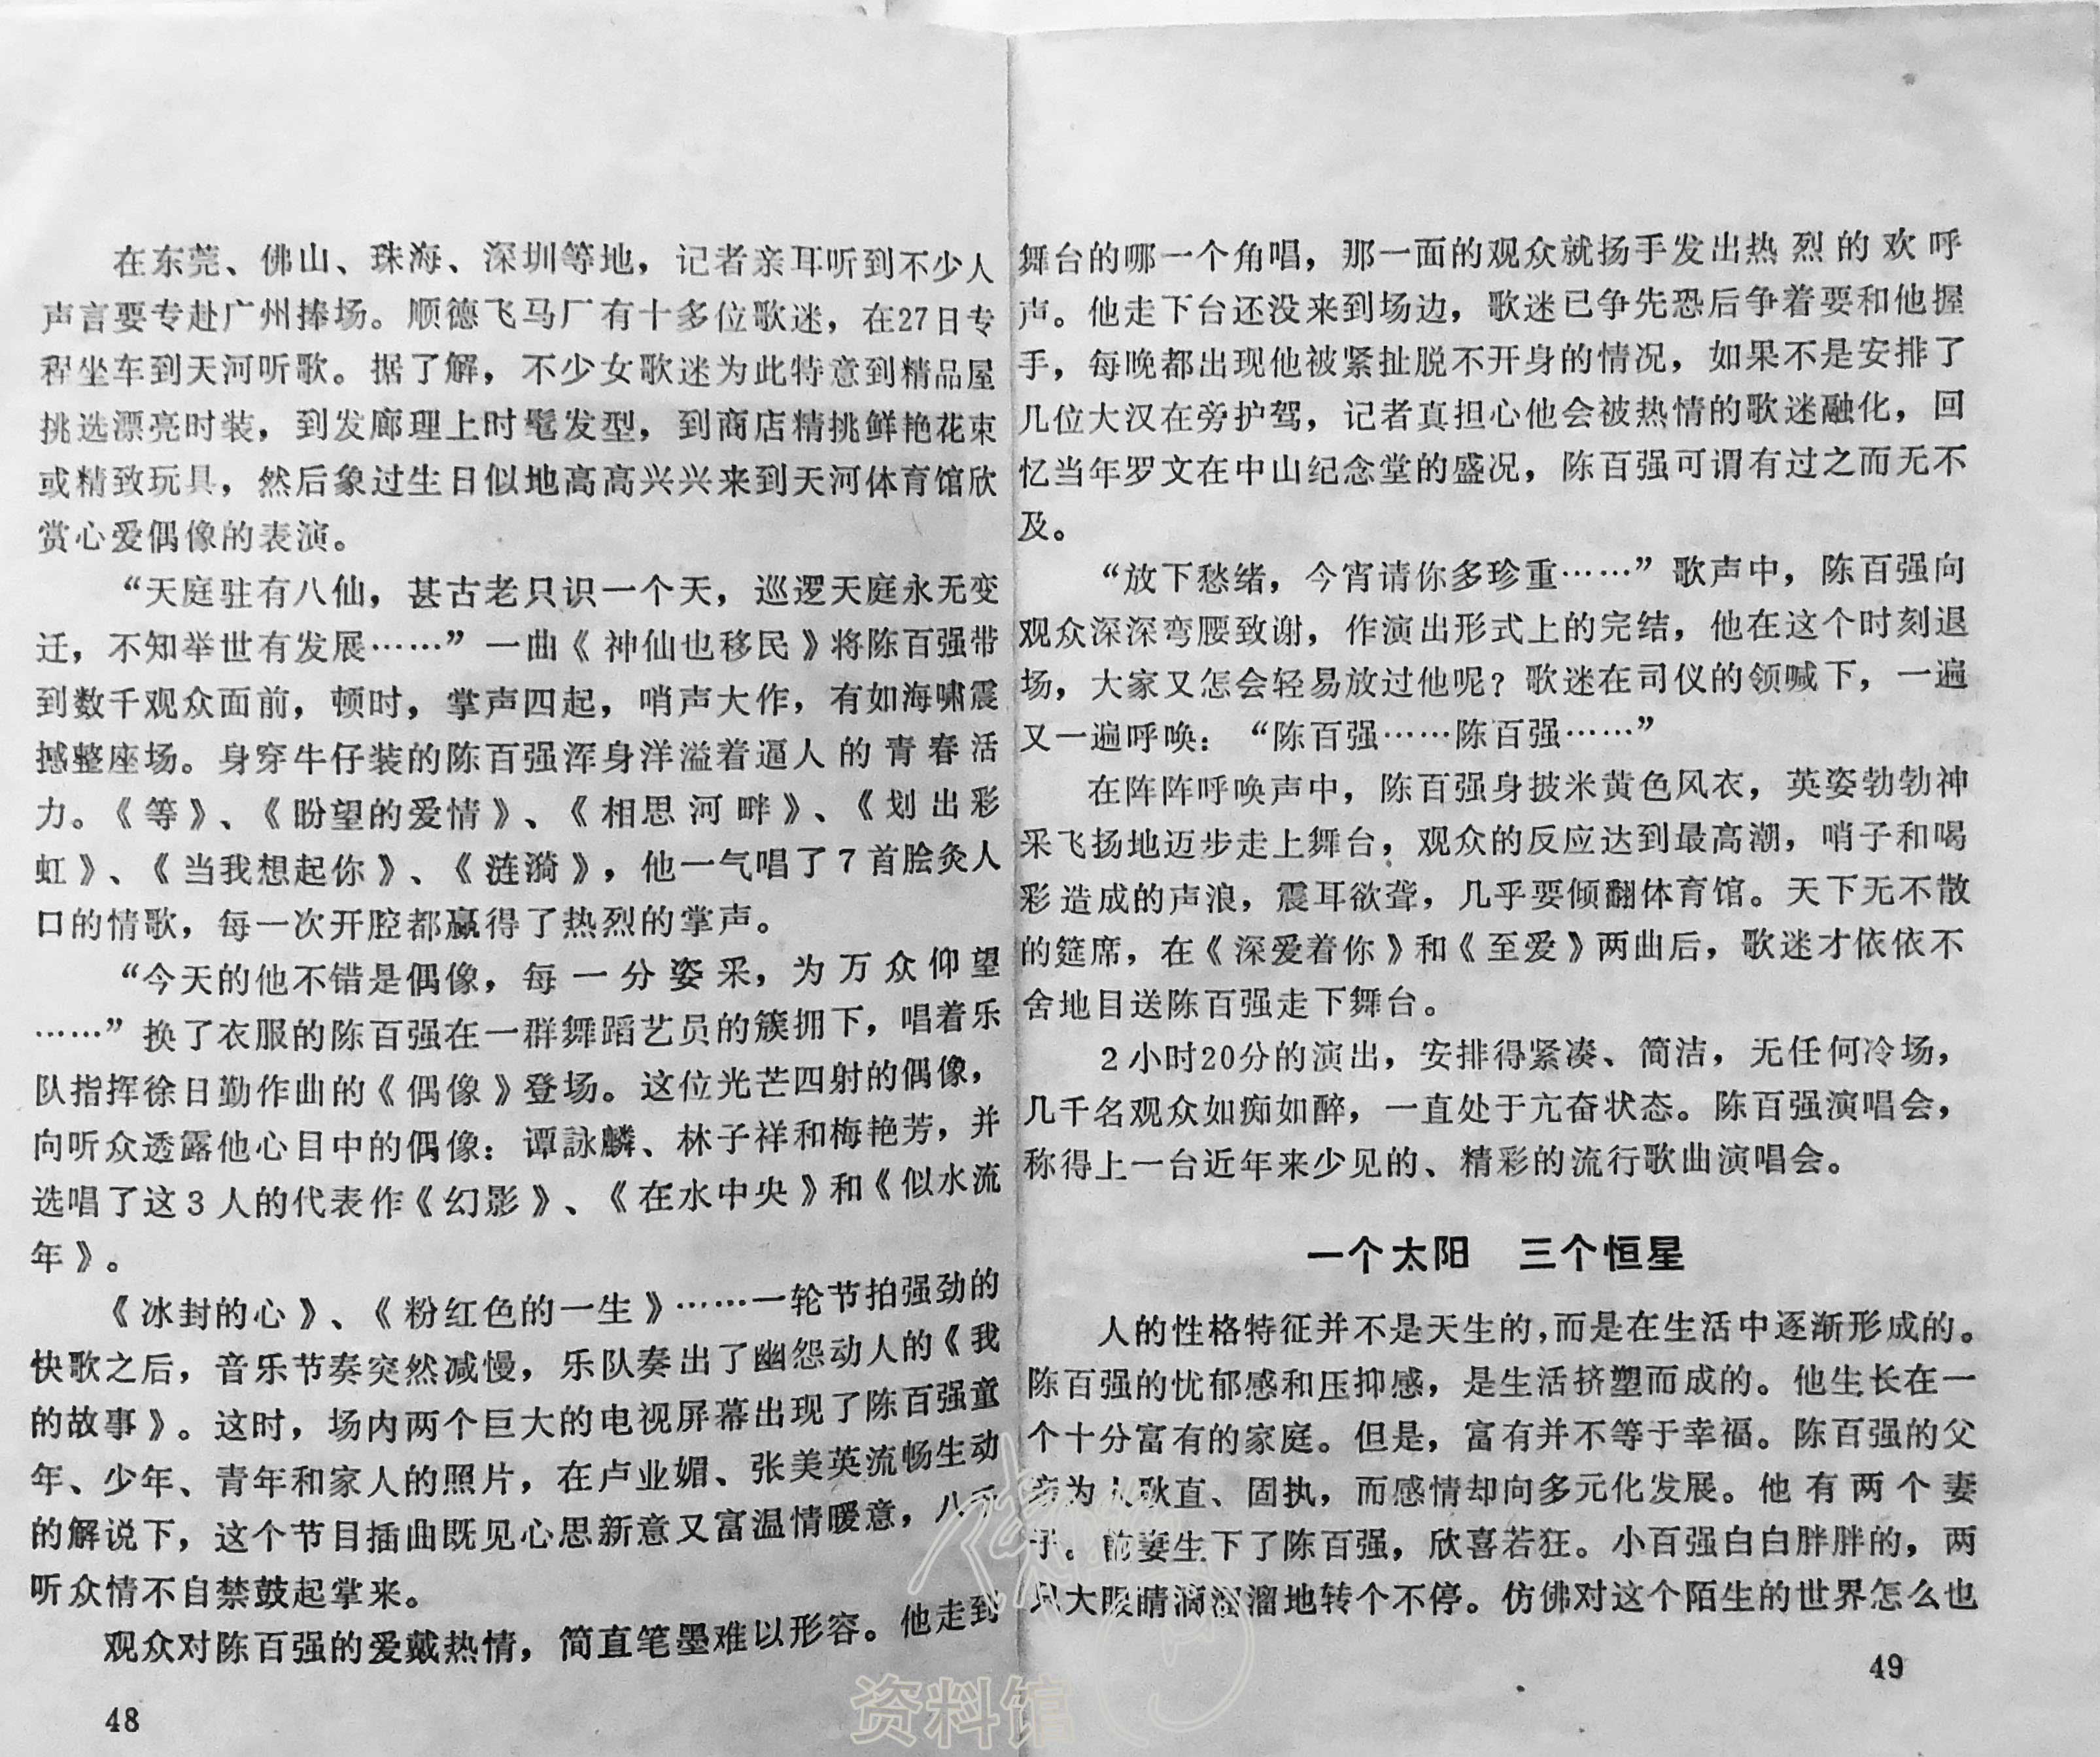 在东莞、佛山、珠海、深圳等地，记者亲耳听到不少人
声言要专赴广州捧场。顺德飞马厂有十多位歌迷，在27日专
程坐车到天河听歌。据了解，不少女歌迷为此特意到精品屋
挑选漂亮时装，到发廊理上时髦发型，到商店精挑鲜艳花束
或精致玩具，然后象过生日似地高高兴兴来到天河体育馆欣
赏心爱偶像的表演。
“天庭驻有八仙，甚古老只识一个天，巡逻天庭永无变
迁，不知举世有发展……”一曲《神仙也移民》将陈百强带
到数千观众面前，顿时，掌声四起，哨声大作，有如海啸震
撼整座场。身穿牛仔装的陈百强浑身洋溢着逼人的青春活
力。《等》、《盼望的爱情》、《相思河畔》、《划出彩
虹》、《当我想起你》、《涟漪》，他一气唱了7首脍灸人
口的情歌，每一次开腔都赢得了热烈的掌声。
“今天的他不错是偶像，每一分姿采，为万众仰望
……”换了衣服的陈百强在一群舞蹈艺员的簇拥下，唱着乐
队指挥徐日勤作曲的《偶像》登场。这位光芒四射的偶像，
向听众透露他心目中的偶像：谭詠麟、林子祥和梅艳芳，并
选唱了这3人的代表作《幻影》、《在水中央》和《似水流
年》。
《冰封的心》、《粉红色的一生》……一轮节拍强劲的
快歌之后，音乐节奏突然减慢，乐队奏出了幽怨动人的《我
的故事》。这时，场内两个巨大的电视屏幕出现了陈百强童
年、少年、青年和家人的照片，在卢业媚、张美英流畅生动
的解说下，这个节目插曲既见心思新意又富温情暖意，八千
听众情不自禁鼓起掌来。
观众对陈百强的爱戴热情，简直笔墨难以形容。他走到
48
舞台的哪一个角唱，那一面的观众就扬手发出热烈的欢呼
声。他走下台还没来到场边，歌迷已争先恐后争着要和他握
手，每晚都出现他被紧扯脱不开身的情况，如果不是安排了
几位大汉在旁护驾，记者真担心他会被热情的歌迷融化，回
忆当年罗文在中山纪念堂的盛况，陈百强可谓有过之而无不
及。
“放下愁绪，今宵请你多珍重……”歌声中，陈百强向
观众深深弯腰致谢，作演出形式上的完结，他在这个时刻退
场，大家又怎会轻易放过他呢？歌迷在司仪的领喊下，一遍
又一遍呼唤：“陈百强……陈百强……”
在阵阵呼唤声中，陈百强身披米黄色风衣，英姿勃勃神
采飞扬地迈步走上舞台，观众的反应达到最高潮，哨子和喝
彩造成的声浪，震耳欲聋，几乎要倾翻体育馆。天下无不散
的筵席，在《深爱着你》和《至爱》两曲后，歌迷才依依不
舍地目送陈百强走下舞台。
2小时20分的演出，安排得紧凑、简洁，无任何冷场，
几千名观众如痴如醉，一直处于亢奋状态。陈百强演唱会，
称得上一台近年来少见的、精彩的流行歌曲演唱会。
一个太阳 三个恒星
人的性格特征并不是天生的，而是在生活中逐渐形成的。
陈百强的忧郁感和压抑感，是生活挤塑而成的。他生长在一
个十分富有的家庭。但是，富有并不等于幸福。陈百强的父
亲为人耿直、固执，而感情却向多元化发展。他有两个妻
子。前妻生下了陈百强，欣喜若狂。小百强白白胖胖的，两
只大眼睛滴溜溜地转个不停。仿佛对这个陌生的世界怎么也
49
资料馆